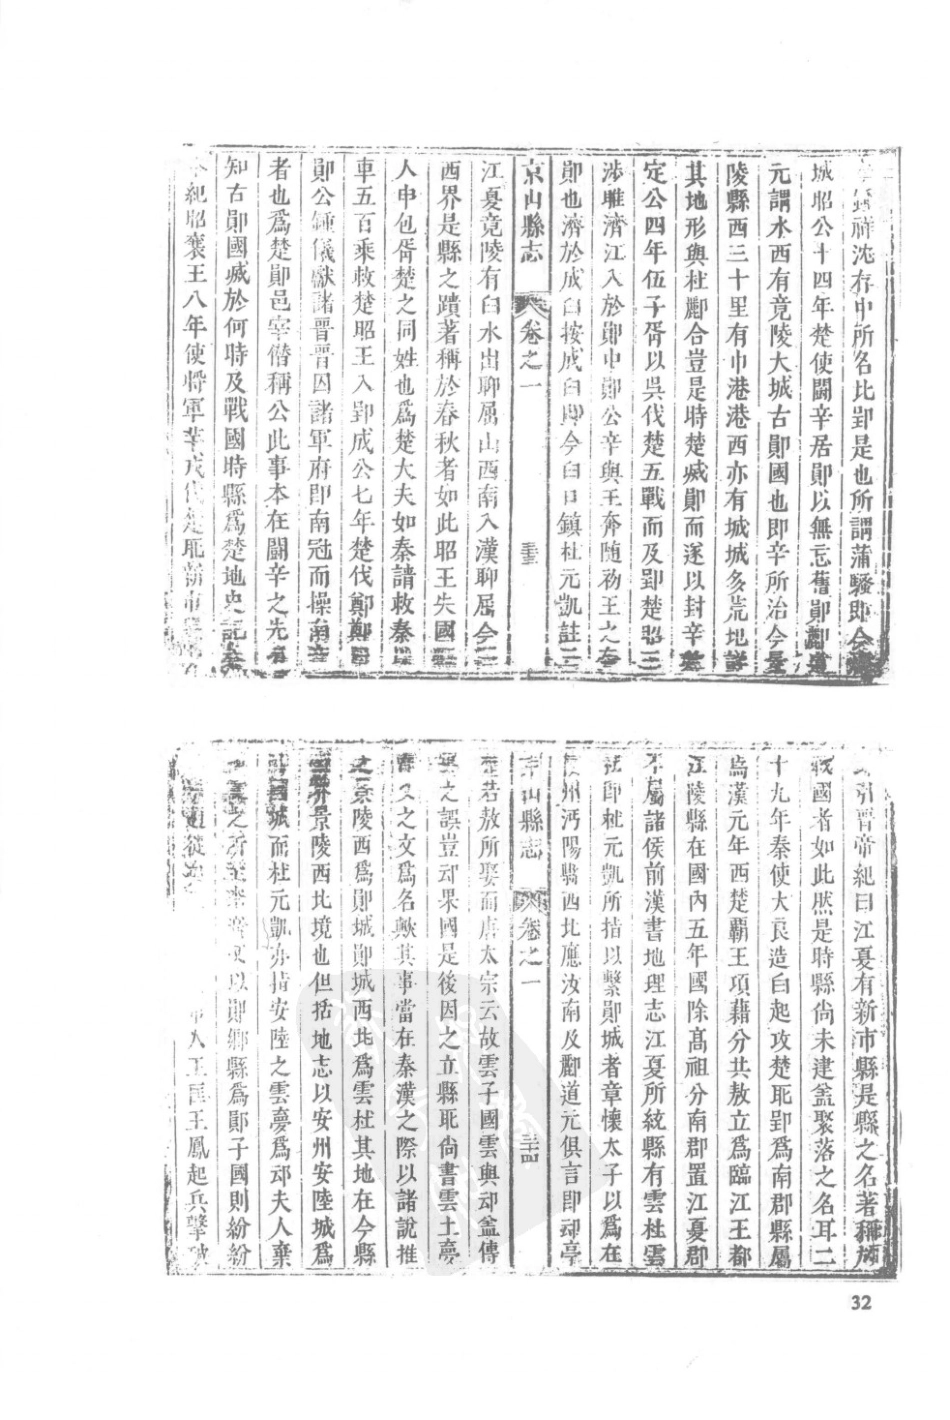 沈存中所名比郢是也所謂蒲騷即今
城昭公十四年楚使鬬辛居鄖以無忘舊鄖酈道
元謂水西有竟陵大城古鄖國也即辛所治今景
陵縣西三十里有巾港港西亦有城城多荒地詳
其地形與杜酈合豈是時楚滅鄖而遂以封辛
定公四年伍子胥以吳伐楚五戰而及郢楚昭王
涉雎濟江入於鄖中鄖公辛與王奔隨初王之在
鄖也濟於成臼按成臼即今臼口鎮杜元凱註云
京山縣志
卷之一
江夏竟陵有臼水出聊屈山西南入漢聊屈今
西界是縣之蹟著稱於春秋者如此昭王失國
人申包胥楚之同姓也爲楚大夫如秦請救秦以
車五百乘救楚昭王入郢成公七年楚伐鄭鄭
鄖公鍾儀獻諸晉晉囚諸軍府即南冠而操南音
者也爲楚鄖邑宰僭稱公此事本在鬬辛之先
知古鄖國滅於何時及戰國時縣爲楚地史記秦
本紀昭襄王八年使將軍芈戎伐楚取新市
引晉帝紀曰江夏有新市縣是縣之名著稱於
戰國者如此然是時縣尚未建葢聚落之名耳二
十九年秦使大良造白起攻楚取郢爲南郡縣屬
焉漢元年西楚霸王項藉分共敖立爲臨江王都
江陵縣在國內五年國除高祖分南郡置江夏郡
不屬諸侯前漢書地理志江夏所統縣有雲杜雲
杜即杜元凱所指以繫鄖城者章懷太子以爲在
州沔陽縣西北應汝南及酈道元俱言即䢵亭
京山縣志
卷之一
三十四
是若敖所娶而唐太宗云故雲子國雲與䢵葢傳
之誤豈䢵果國是後因之立縣取尚書雲土夢
作乂之文爲名歟其事當在秦漢之際以諸說推
之景陵西爲鄖城鄖城西北爲雲杜其地在今縣
界景陵西北境也但括地志以安州安陸城爲
國城而杜元凱亦指安陸之雲夢爲䢵夫人棄
以鄖鄉縣爲鄖子國則紛紛
人王匡王鳳起兵擊
32